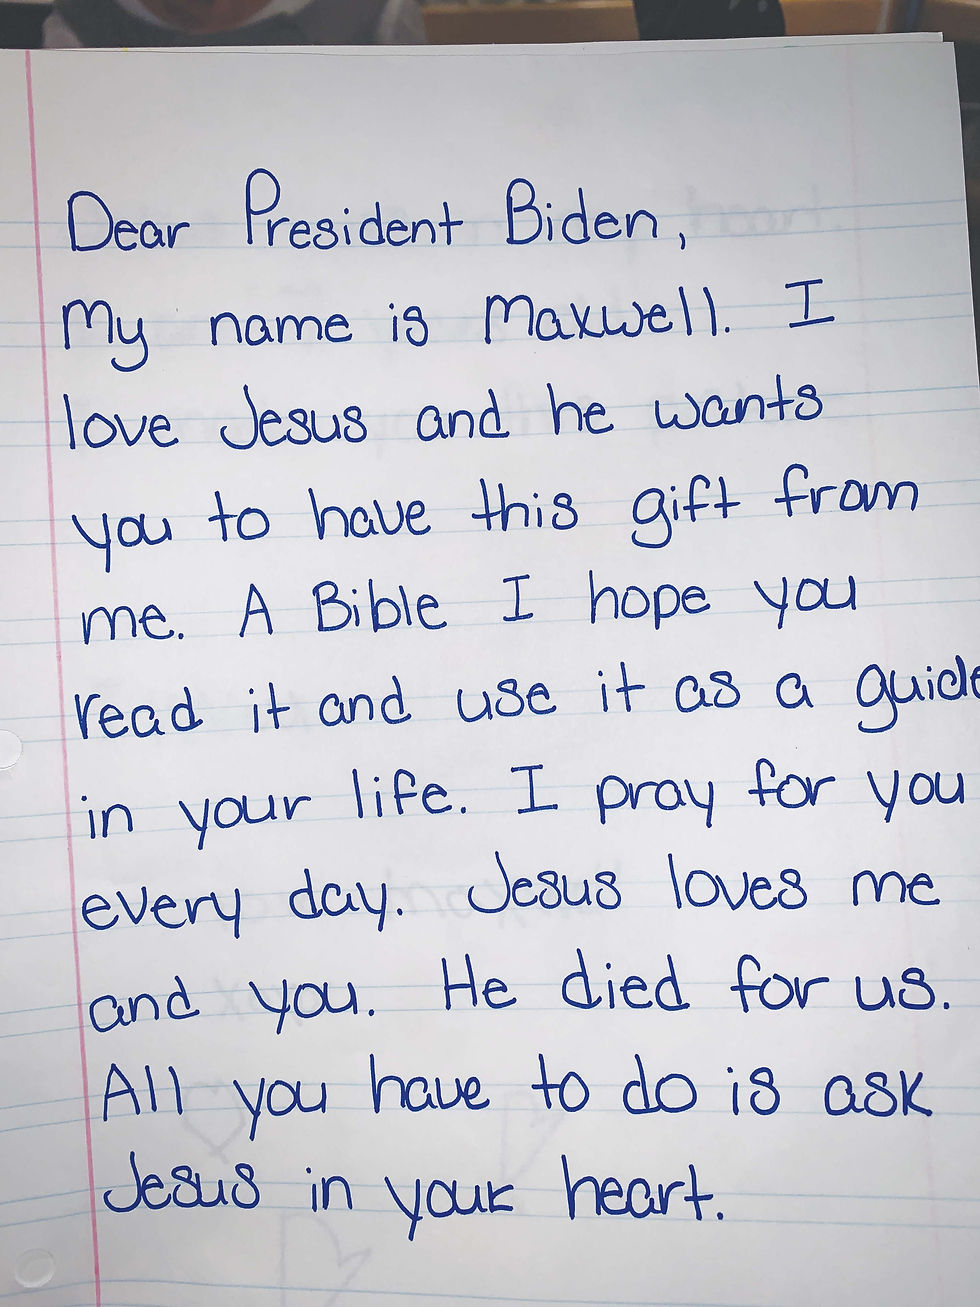 Dear President Biden,
My name is Maxwell. I
love Jesus and he wants
you to have this gift from
me. A Bible I hope you
read it and use it as a guide
in your life. I pray for you
every day. Jesus loves me
and you. He died for us.
All you have to do is ask
Jesus in your heart.